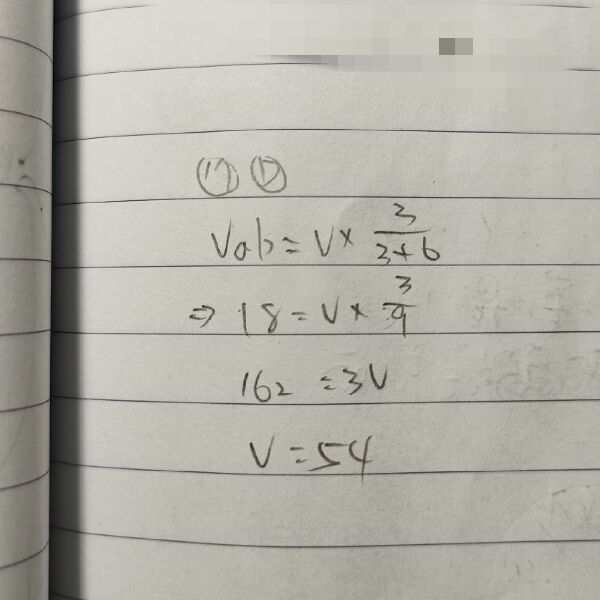 ⑰ Ⓓ
Vab = V × 3/(3+6)
⇒ 18 = V × 3/9
162 = 3V
V = 54